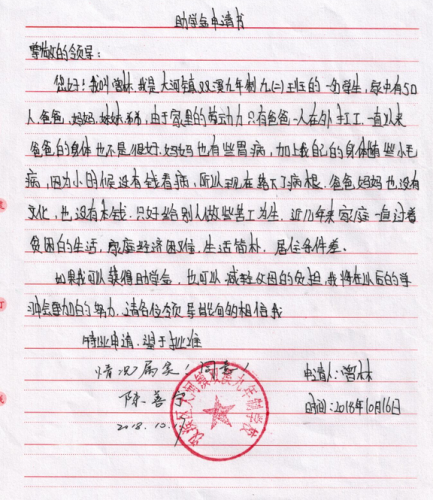 助学金申请书
尊敬的领导:
您好!我叫曾林,我是大河镇双溪九年制九(二)班的一名学生,家中有5口
人爸爸,妈妈,妹妹,弟弟,由于家里的劳动力只有爸爸一人在外打工,一直以来
爸爸的身体也不是很好,妈妈也有些胃病,加上我自己的身体有些小毛
病,因为小时候没有钱看病,所以现在落下了病根。爸爸妈妈也没有
文化,也没有本钱。只好给别人做些苦工为生,近几年来家庭一直过着
贫困的生活,家庭经济困难,生活简朴,居住条件差。
如果我可以获得助学金,也可以减轻父母的负担,我将在以后的学
习会更加的努力,请各位领导
相信我
特此申请,望予批准
情况属实!同意!
申请人:曾林
陈善
2018.10.1
时间:2018年10月16日
大河镇双溪九年制学校